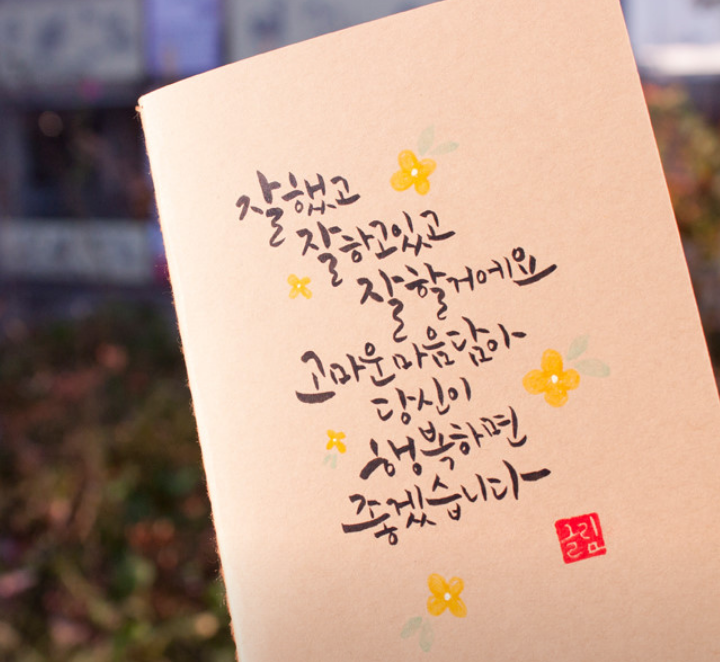 잘했고
잘하고있고
잘할거에요
고마운마음담아
당신이
행복하면
좋겠습니다
글림